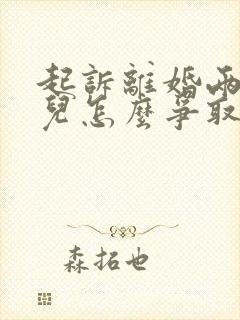 起訴離婚兩
兒怎麼爭取
森拓也